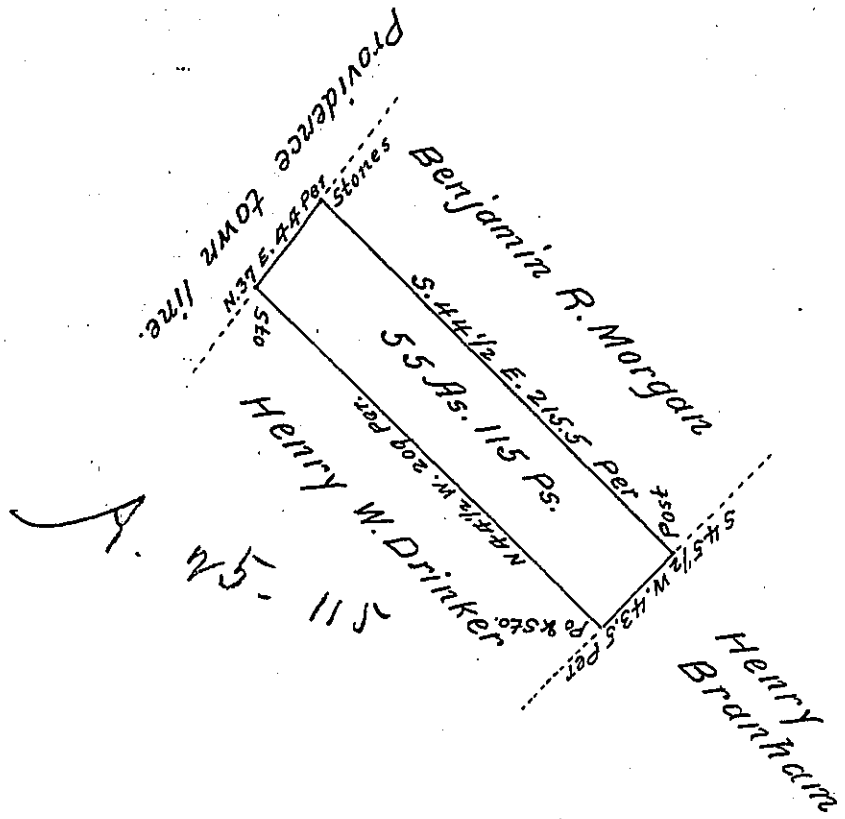 Providence town line.
N.37 E. 44 Per
Stones
Benjamin R. Morgan
S.44 1/2 E. 215.5 Per
55 As. 115 Ps.
Sto
N44 1/2 W. 209 Per.
Henry W. Drinker
Post
S45 1/2 W. 43.5 Per
Po & Sto.
Henry
Branham
115